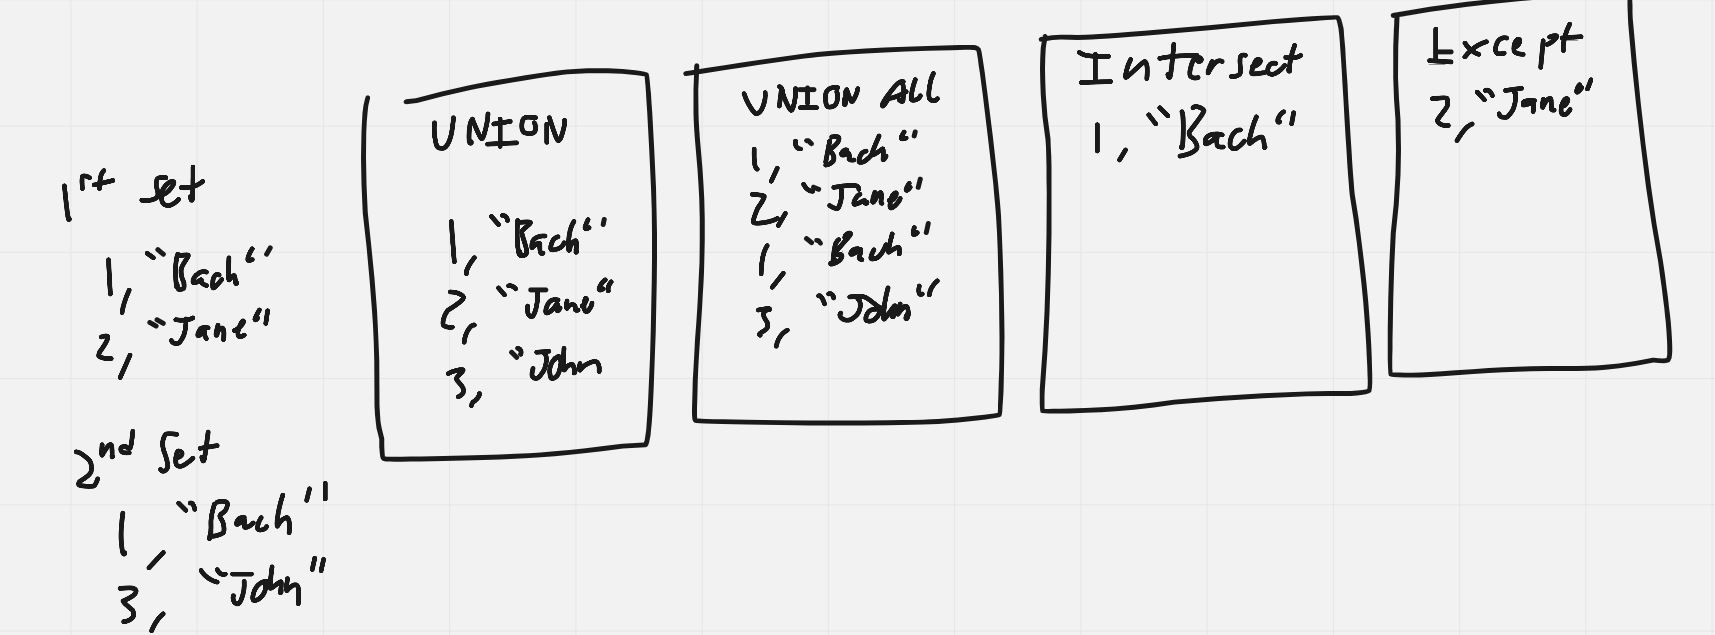 1st set
1, "Bach"
2, "Jane"
2nd Set
1, "Bach"
3, "John"
UNION
1, "Bach"
2, "Jane"
3, "John
UNION ALL
1, "Bach"
2, "Jane"
1, "Bach"
3, "John"
Intersect
1, "Bach"
Except
2, "Jane"